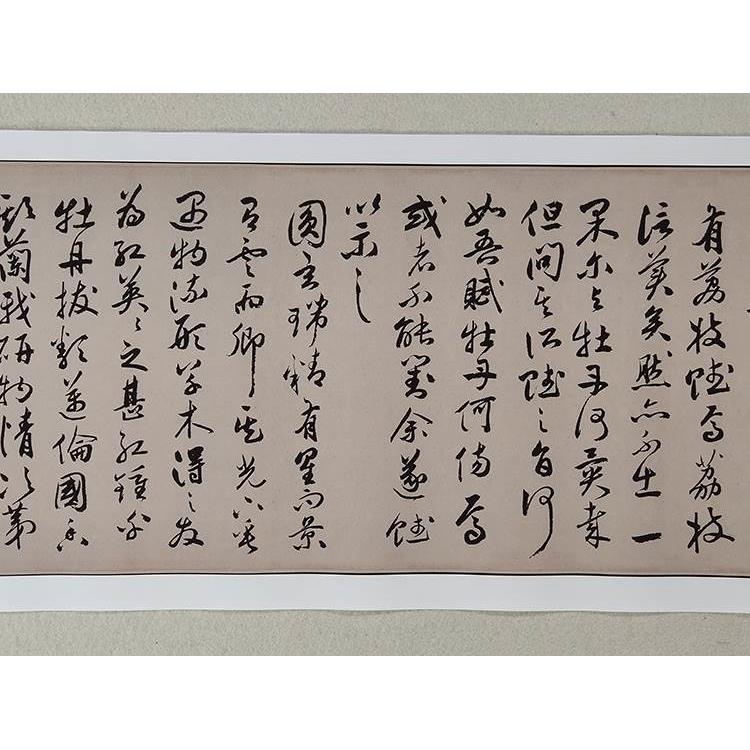 有荔枝賦焉荔枝
信美矣然亦不出一
果尔与牡丹何異哉
但問其所賦之旨何
如吾賦牡丹何傷焉
或者不能對余遂賦
以示之
圓玄瑞精有星而景
有雲而卿其光下垂
遇物流形草木得之发
為紅英々之甚紅鍾乎
牡丹拔類邁倫國香
欺蘭我研物情次第